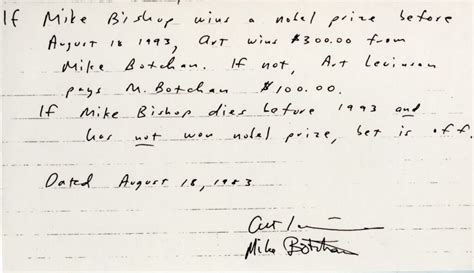 If Mike Bishop wins a nobel prize before
August 18 1993, Art wins $300.00 from
Mike Botchan. If not, Art Levinson
pays M. Botchan $100.00.
If Mike Bishop dies before 1993 and
has not won nobel prize, bet is off.
Dated August 18, 1983
Art
Mike Botchan